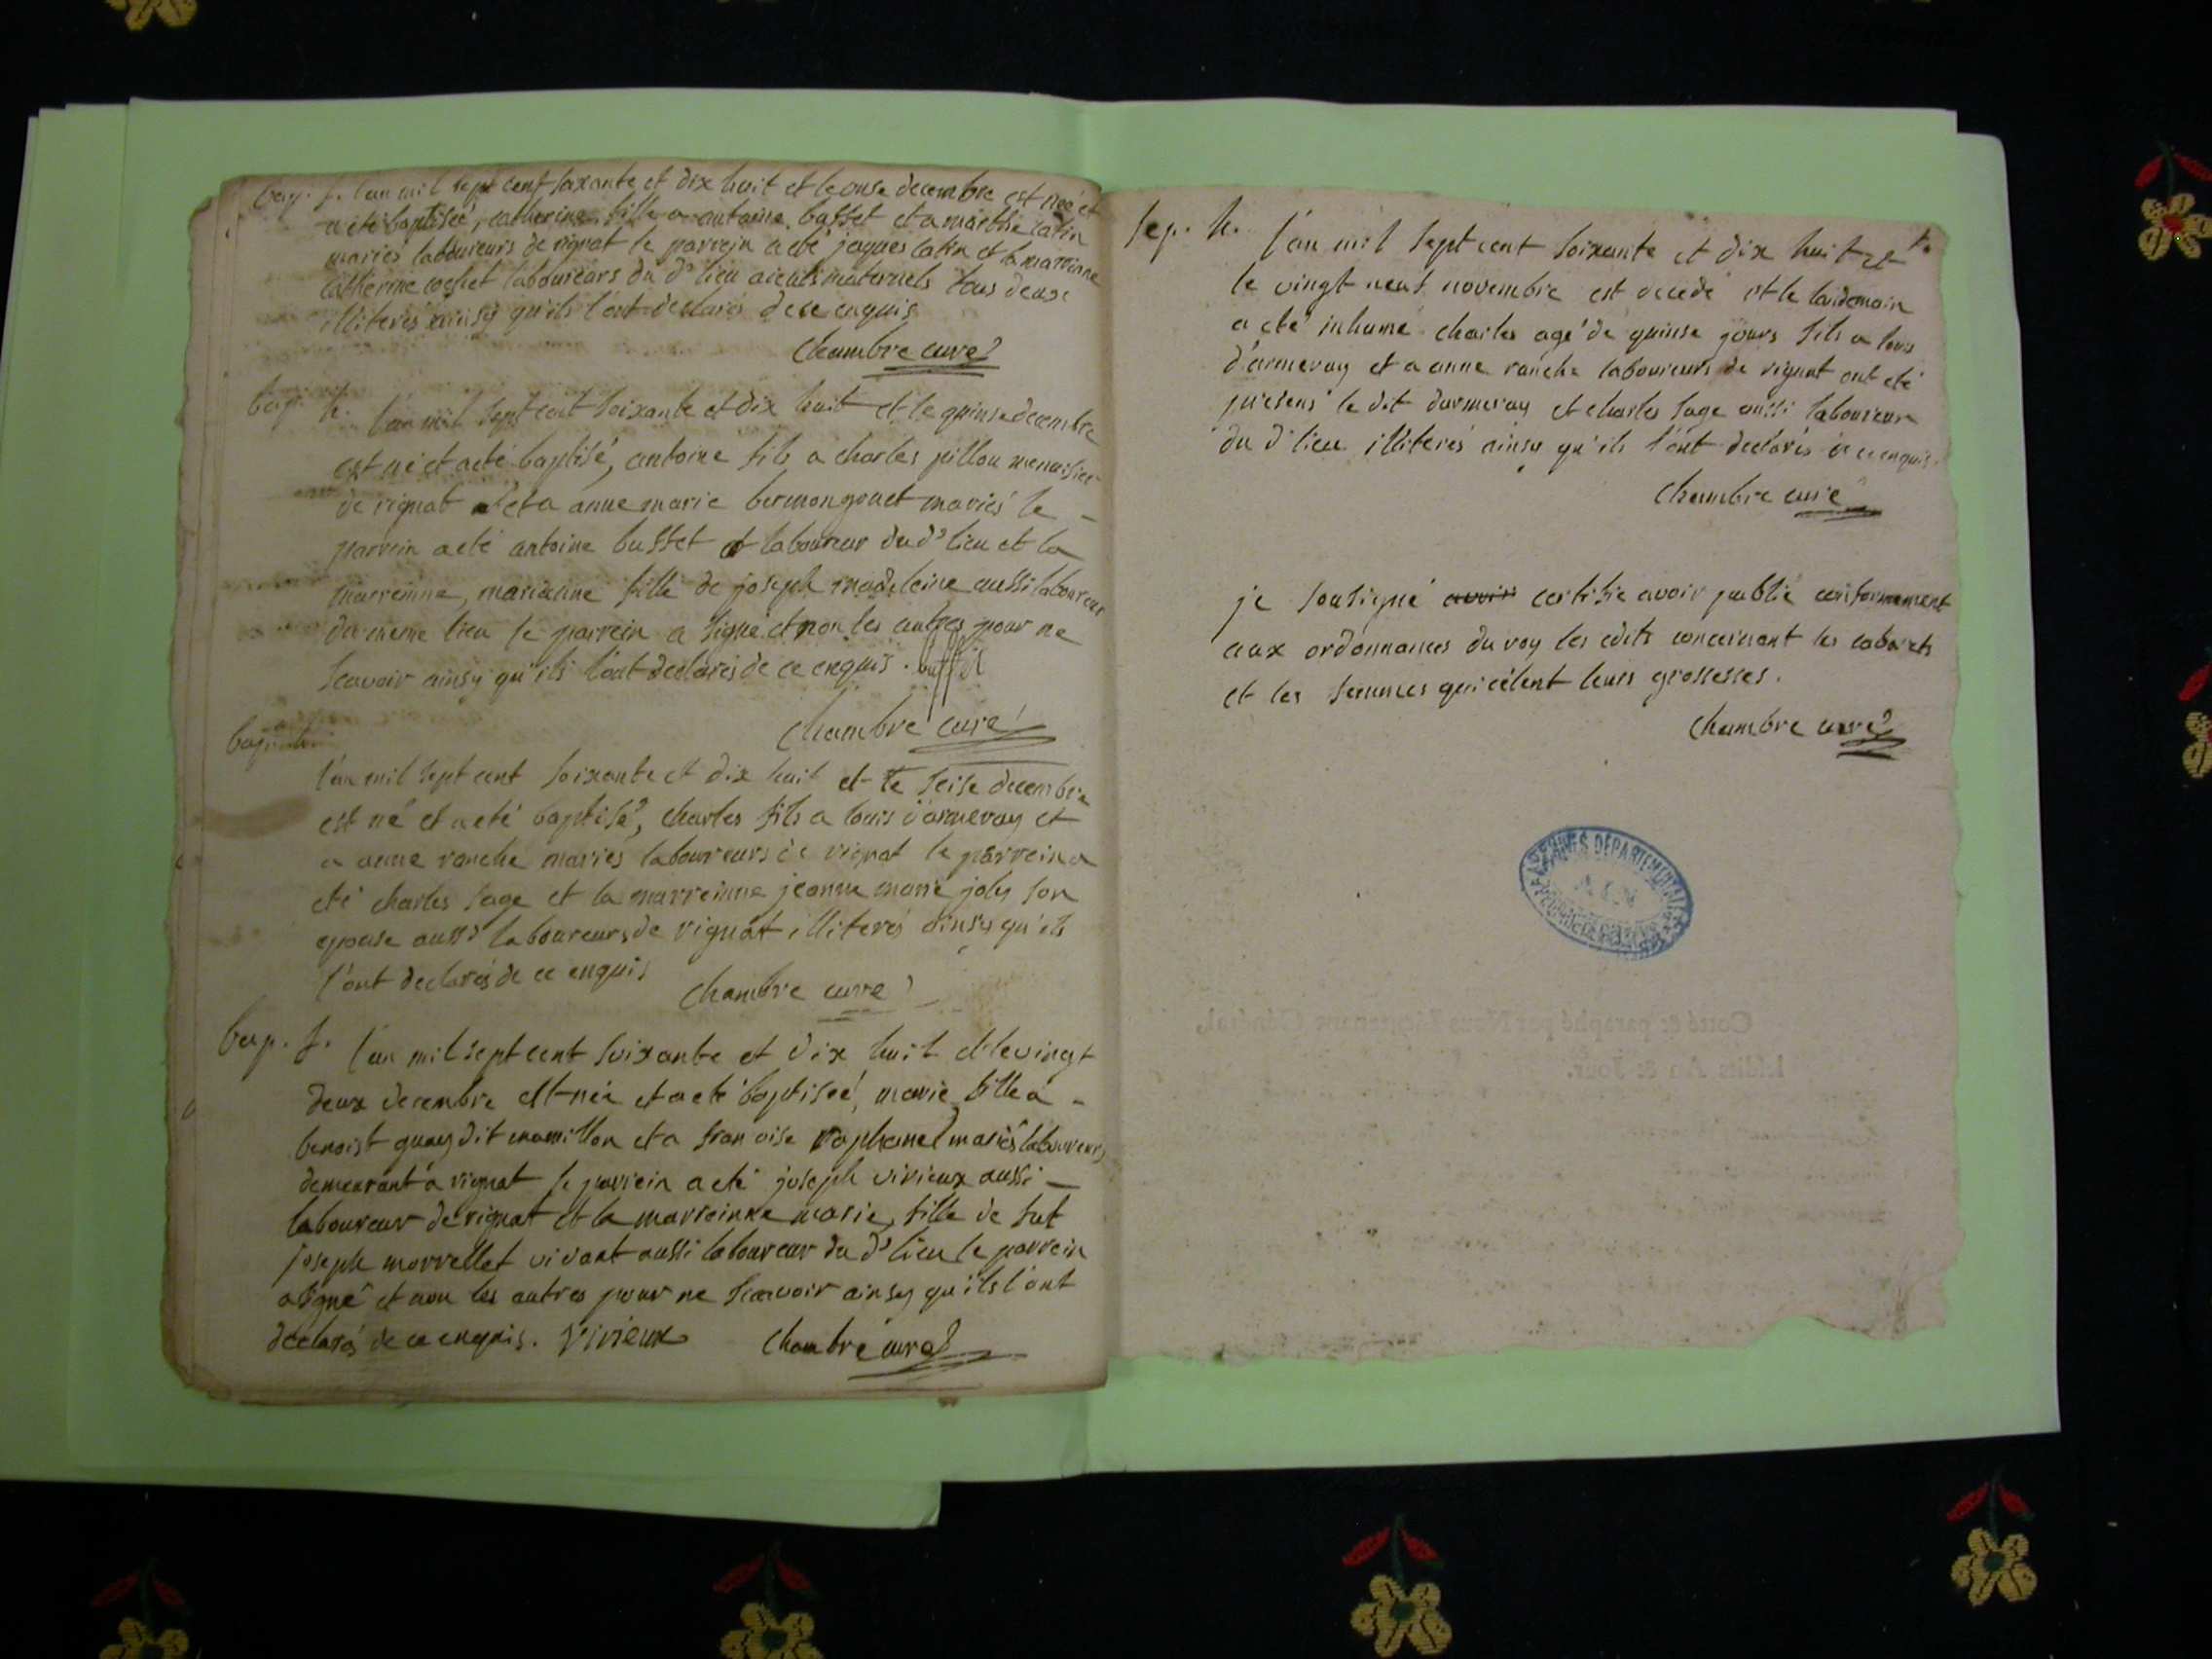 bap. f. l'an mil sept cent soixante et dix huit et le onse decembre est née et
a eté baptiseé, catherine fille a antoine busset et a marthe catin
mariés laboureurs de rignat le parrein a eté jaques catin et la marreinne
catherine cochet laboureurs du d' lieu aieuls maternels tous deux
illiterés ainsy qu'ils l'ont declarés de ce enquis
chambre curé
bap. h. l'an mil sept cent soixante et dix huit et le quinse decembre
est né et a eté baptisé, antoine fils a charles pillon menuisier
de rignat et a anne marie bermongonet mariés le -
parrein a eté antoine busset laboureur du d' lieu et la
marreinne, marianne fille de joseph madeleine aussi laboureur
du meme lieu le parrein a signé et non les autres pour ne
scavoir ainsy qu'ils l'ont declarés de ce enquis.
chambre curé
bap. h.
l'an mil sept cent soixante et dix huit et le seise decembre
est né et a eté baptisé, charles fils a louis d'armeray et
a anne ranche mariés laboureurs de rignat le parrein a
eté charles sage et la marreinne jeanne marie joly son
epouse aussi laboureurs de rignat illiterés ainsy qu'ils
l'ont declarés de ce enquis
chambre curé
bap. f. l'an mil sept cent soixante et dix huit et le vingt
deux decembre est née et a eté baptiseé, marie fille a -
benoist guay dit mamillon et a francoise raphanel mariés laboureurs
demeurant a rignat le parrein a eté joseph vivieux aussi -
laboureur de rignat et la marreinne marie, fille de fut
joseph morvellet vivant aussi laboureur du d' lieu le parrein
a signé et non les autres pour ne scavoir ainsy qu'ils l'ont
declarés de ce enquis. Vivieux chambre curé
sep. h. l'an mil sept cent soixante et dix huit et
le vingt neuf novembre est decedé et le landemain
a eté inhumé charles agé de quinse jours fils a louis
d'armeray et a anne ranche laboureurs de rignat ont eté
presens le dit darmeray et charles sage aussi laboureur
du d' lieu illiterés ainsy qu'ils l'ont declarés de ce enquis.
chambre curé
je sousigné avoir certifie avoir publié conformement
aux ordonnances du roy les edits concernant les cabarets
et les femmes qui cèlent leurs grossesses.
chambre curé
ARCHIVES DÉPARTEMENTALES
AIN
Cotté & paraphé par Nous Lieutenant Général,
lesdits An & Jour.